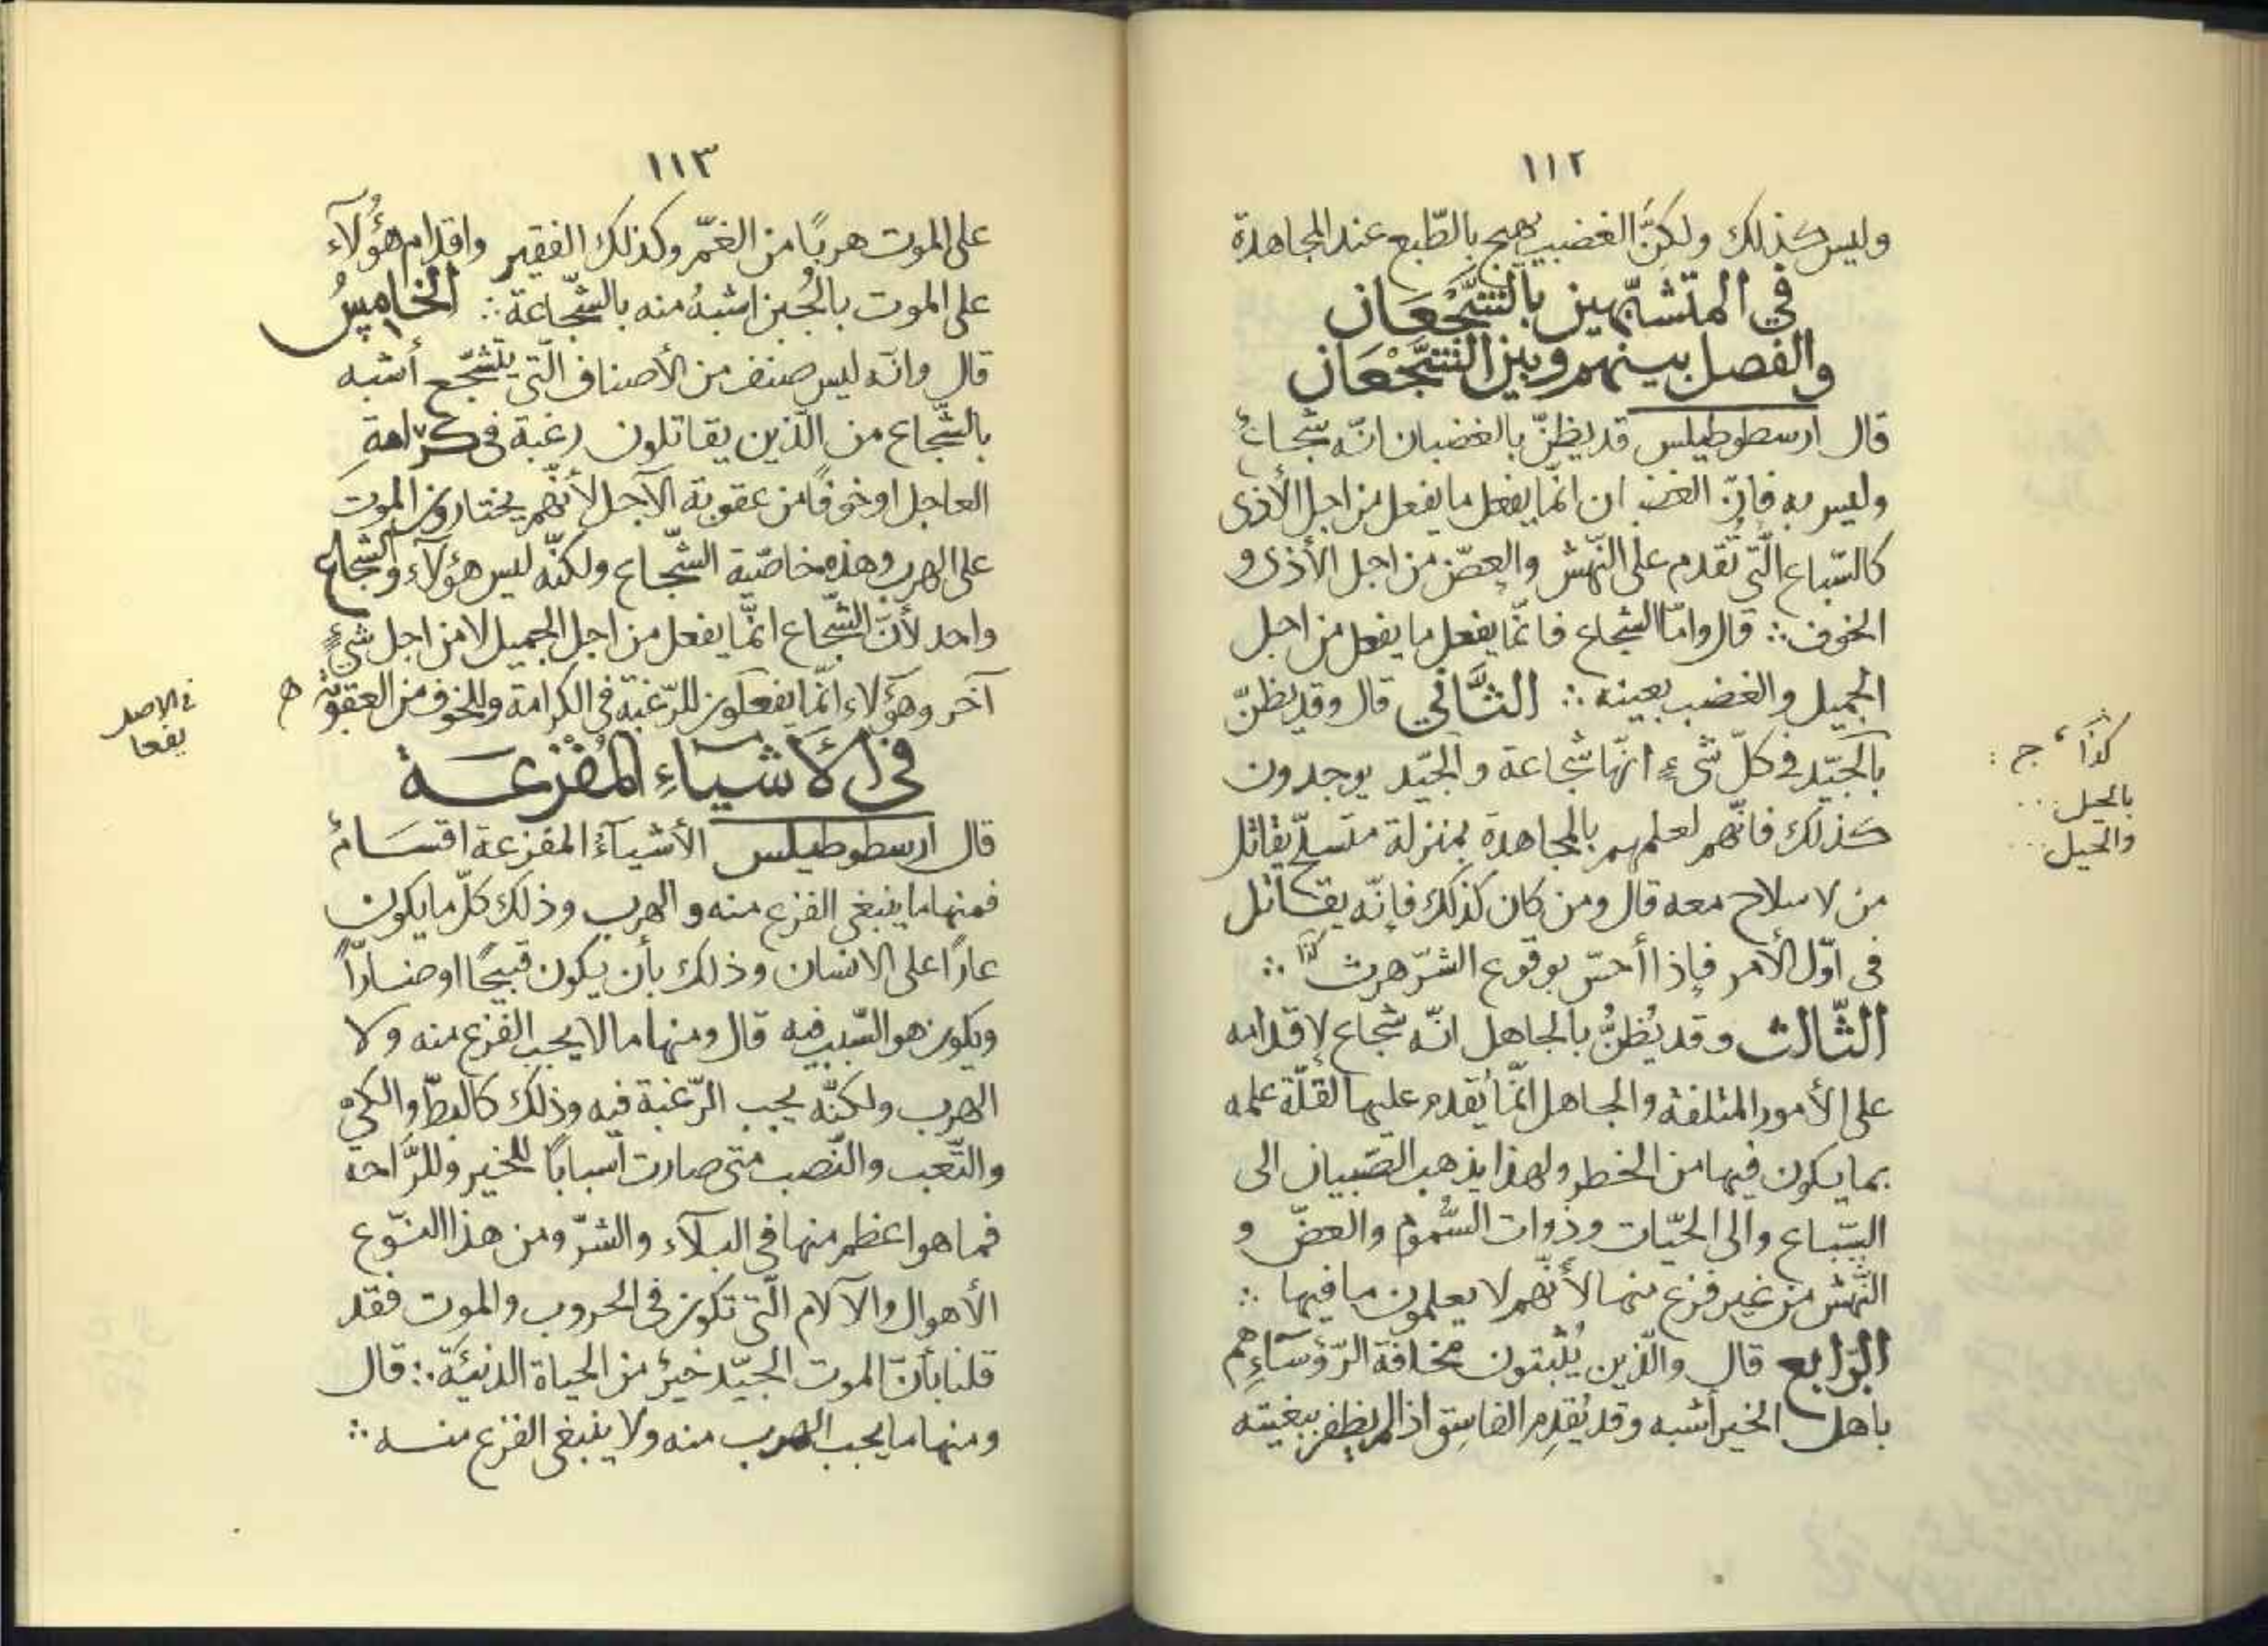 ١١٢
وليس كذلك ولكنّ الغضب يهيج بالطّبع عند المجاهدة
في المتشبّهين بالشّجْعَان
والفصل بينهم وبين الشّجْعَان
قال ارسطوطيلس قد يظنّ بالغضبان انّه شجاعٌ
وليس به فانّ الغضبان انّما يفعل ما يفعل من اجل الأذى
كالسّباع الّتي تُقدم على النّهش والعضّ من اجل الأذى و
الخوف ∴ قال وامّا الشجاع فانّما يفعل ما يفعل من اجل
الجميل والغضب بعينه ∴ الثّاني قال وقد يظنّ
بالجيّد في كلّ شيءٍ انّها شجاعة والجيّد يوجدون
كذلك فانّهم لعلمهم بالمجاهدة بمنزلة متسلّح يقاتل
من لا سلاح معه قال ومن كان كذلك فإنّه يقاتل
في اوّل الأمر فإذا أحسّ بوقوع الشرّ هرب كذا ∴
الثّالث وقد يُظنُّ بالجاهل انّه شجاع لإقدامه
على الأمور المتلفة والجاهل انّما يُقدم عليها لقلّة علمه
بما يكون فيها من الخطر ولهذا يذهب الصّبيان الى
السّباع والى الحيّات وذوات السُّموم والعضّ و
النّهش من غير فزع منها لأنّهم لا يعلمون ما فيها ∴
الرّابع قال والّذين يُثبتون مخافة الرّؤسآءِ هم
بأهل الخير أشبه وقد يُقدِم الفاسِق اذا لم يظفر ببغيته
كذا، ج :
بالحيل ...
والحيل ...
١١٣
على الموت هربًا من الغمّ وكذلك الفقير واقدام هؤُلآء
على الموت بالجُبن اشبهُ منه بالشّجاعة ∴ الخامِسُ
قال وانّه ليس صنف من الأصناف الّتي يتشجّع أشبه
بالشّجاع من الّذين يقاتلون رغبة في كرامةِ
العاجل او خوفًا من عقوبة الآجل لأنّهم يختارون الموت
على الهرب وهذه خاصّية الشّجاع ولكنّه ليس هؤلآء والشجاع
واحد لأنّ الشّجاع انّما يفعل من اجل الجميل لا من اجل شيءٍ
آخر وهؤلاء انّما يفعلون للرّغبة في الكرامة وللخوف من العقوبة
في الأشيَاءِ المُفْزِعَة
قال ارسطوطيلس الأشيآءُ المفزعة اقسَامٌ
فمنها ما ينبغي الفزع منه والهرب وذلك كلّ ما يكون
عارًا على الانسان وذلك بأن يكون قبيحًا او ضارًّا
ويكون هو السّبب فيه قال ومنها ما لا يجب الفزع منه ولا
الهرب ولكنّه يجب الرّغبة فيه وذلك كالبطّ والكيّ
والتّعب والنّصب متى صارت اسبابًا للخير وللرَّاحة
فما هو اعظم منها في البلآء والشرّ ومن هذا النّوع
الأهوال والآلام الّتي تكون في الحروب والموت فقد
قلنا بأنّ الموت الجيّد خيرٌ من الحياة الدنيئة ∴ قال
ومنها ما يجب الهرب منه ولا ينبغي الفزع منه ∴
في الاصل